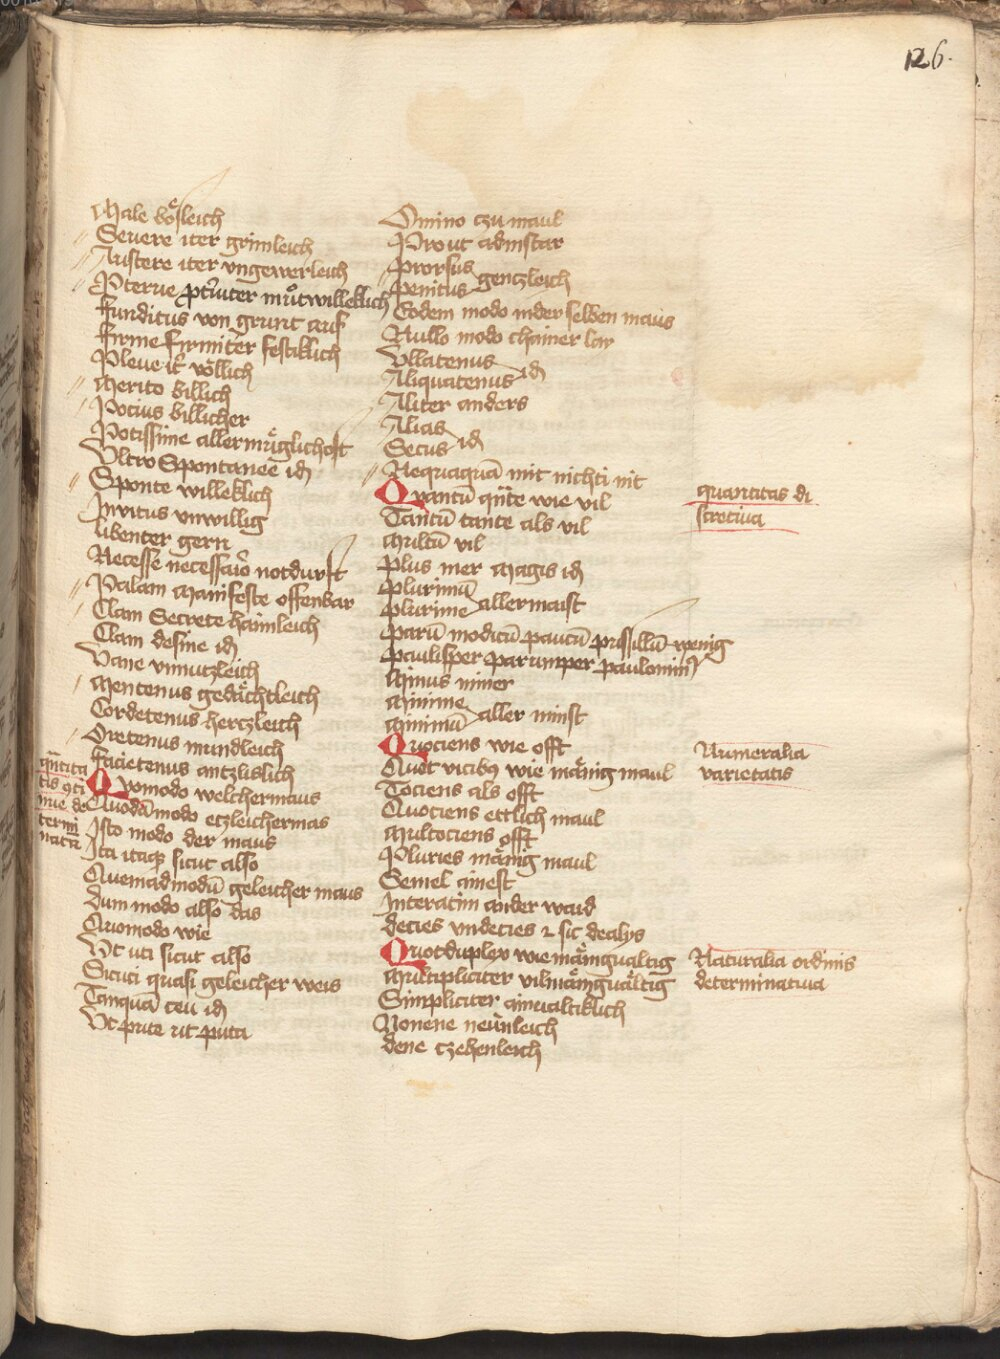 126.
Male böͤsleich
Severe iter grimleich
Austere iter ungewerleich
Pterve ꝓtͥuiter muͦtwilleklich
Funditus von grunt auf
Firme firmiter festiklich
Pleve it͛ völlich
Merito billich
Potius billicher
Potissime allermuͤglichost
Ultro Spontanee id
Sponte willeklich
Invitus unwillig
libenter gern
Necesse necessaͥo notdurft
Palam Manifeste offenbar
Clam Secrete haimleich
Clam desine id
Vane unnutzleich
Mentenus gedaͤchtleich
Cordetenus hertzleich
Oretenus mundleich
Facietenus antzlislich
qͥntita
tis ꝯti
nue de
termi
natā
Quomodo welchermaus
Quodāmodo etzleichermas
Isto modo der maus
Ita itaqꝫ sicut also
Quemadmodū geleicher maus
Dum modo also das
Quomodo wie
Ut uti sicut also
Sicuti quasi geleicher weis
Tanquā ceu id
Ut pute ut puta
Omino czu maul
Prout adinstar
Prorsus
Penitus gentzleich
Eodem modo inder selben maus
Nullo modo chainer lay
Ullatenus
Aliquatenus id
Aliter anders
Alias
Secus id
Nequaquā mit nichti nit
Quantū qn̄te wie vil
Tantū tante als vil
Multū vil
Plus mer Magis id
Plurimū
Plurime allermaist
Parū modicū paucū pussillū wenig
Paulisper Parumper paulominꝰ
Minus miner
Minime
Minimū aller minst
Quociens wie offt
Quot vicibꝰ wie maͤnig maul
Tociens als offt
Quociens ettlich maul
Multociens offt
Pluries maͤnig maul
Semel ainest
Interatim ander waid
decies undecies ⁊ sic de alijs
Quotduplex wie maͤingualtig
Multipliciter vilmaͤinguältig
Simpliciter ainualtiklich
Nonene neünleich
dene czehenleich
quantitas di
scretiva
Numeralia
varietatis
Naturalia ordinis
determinativa